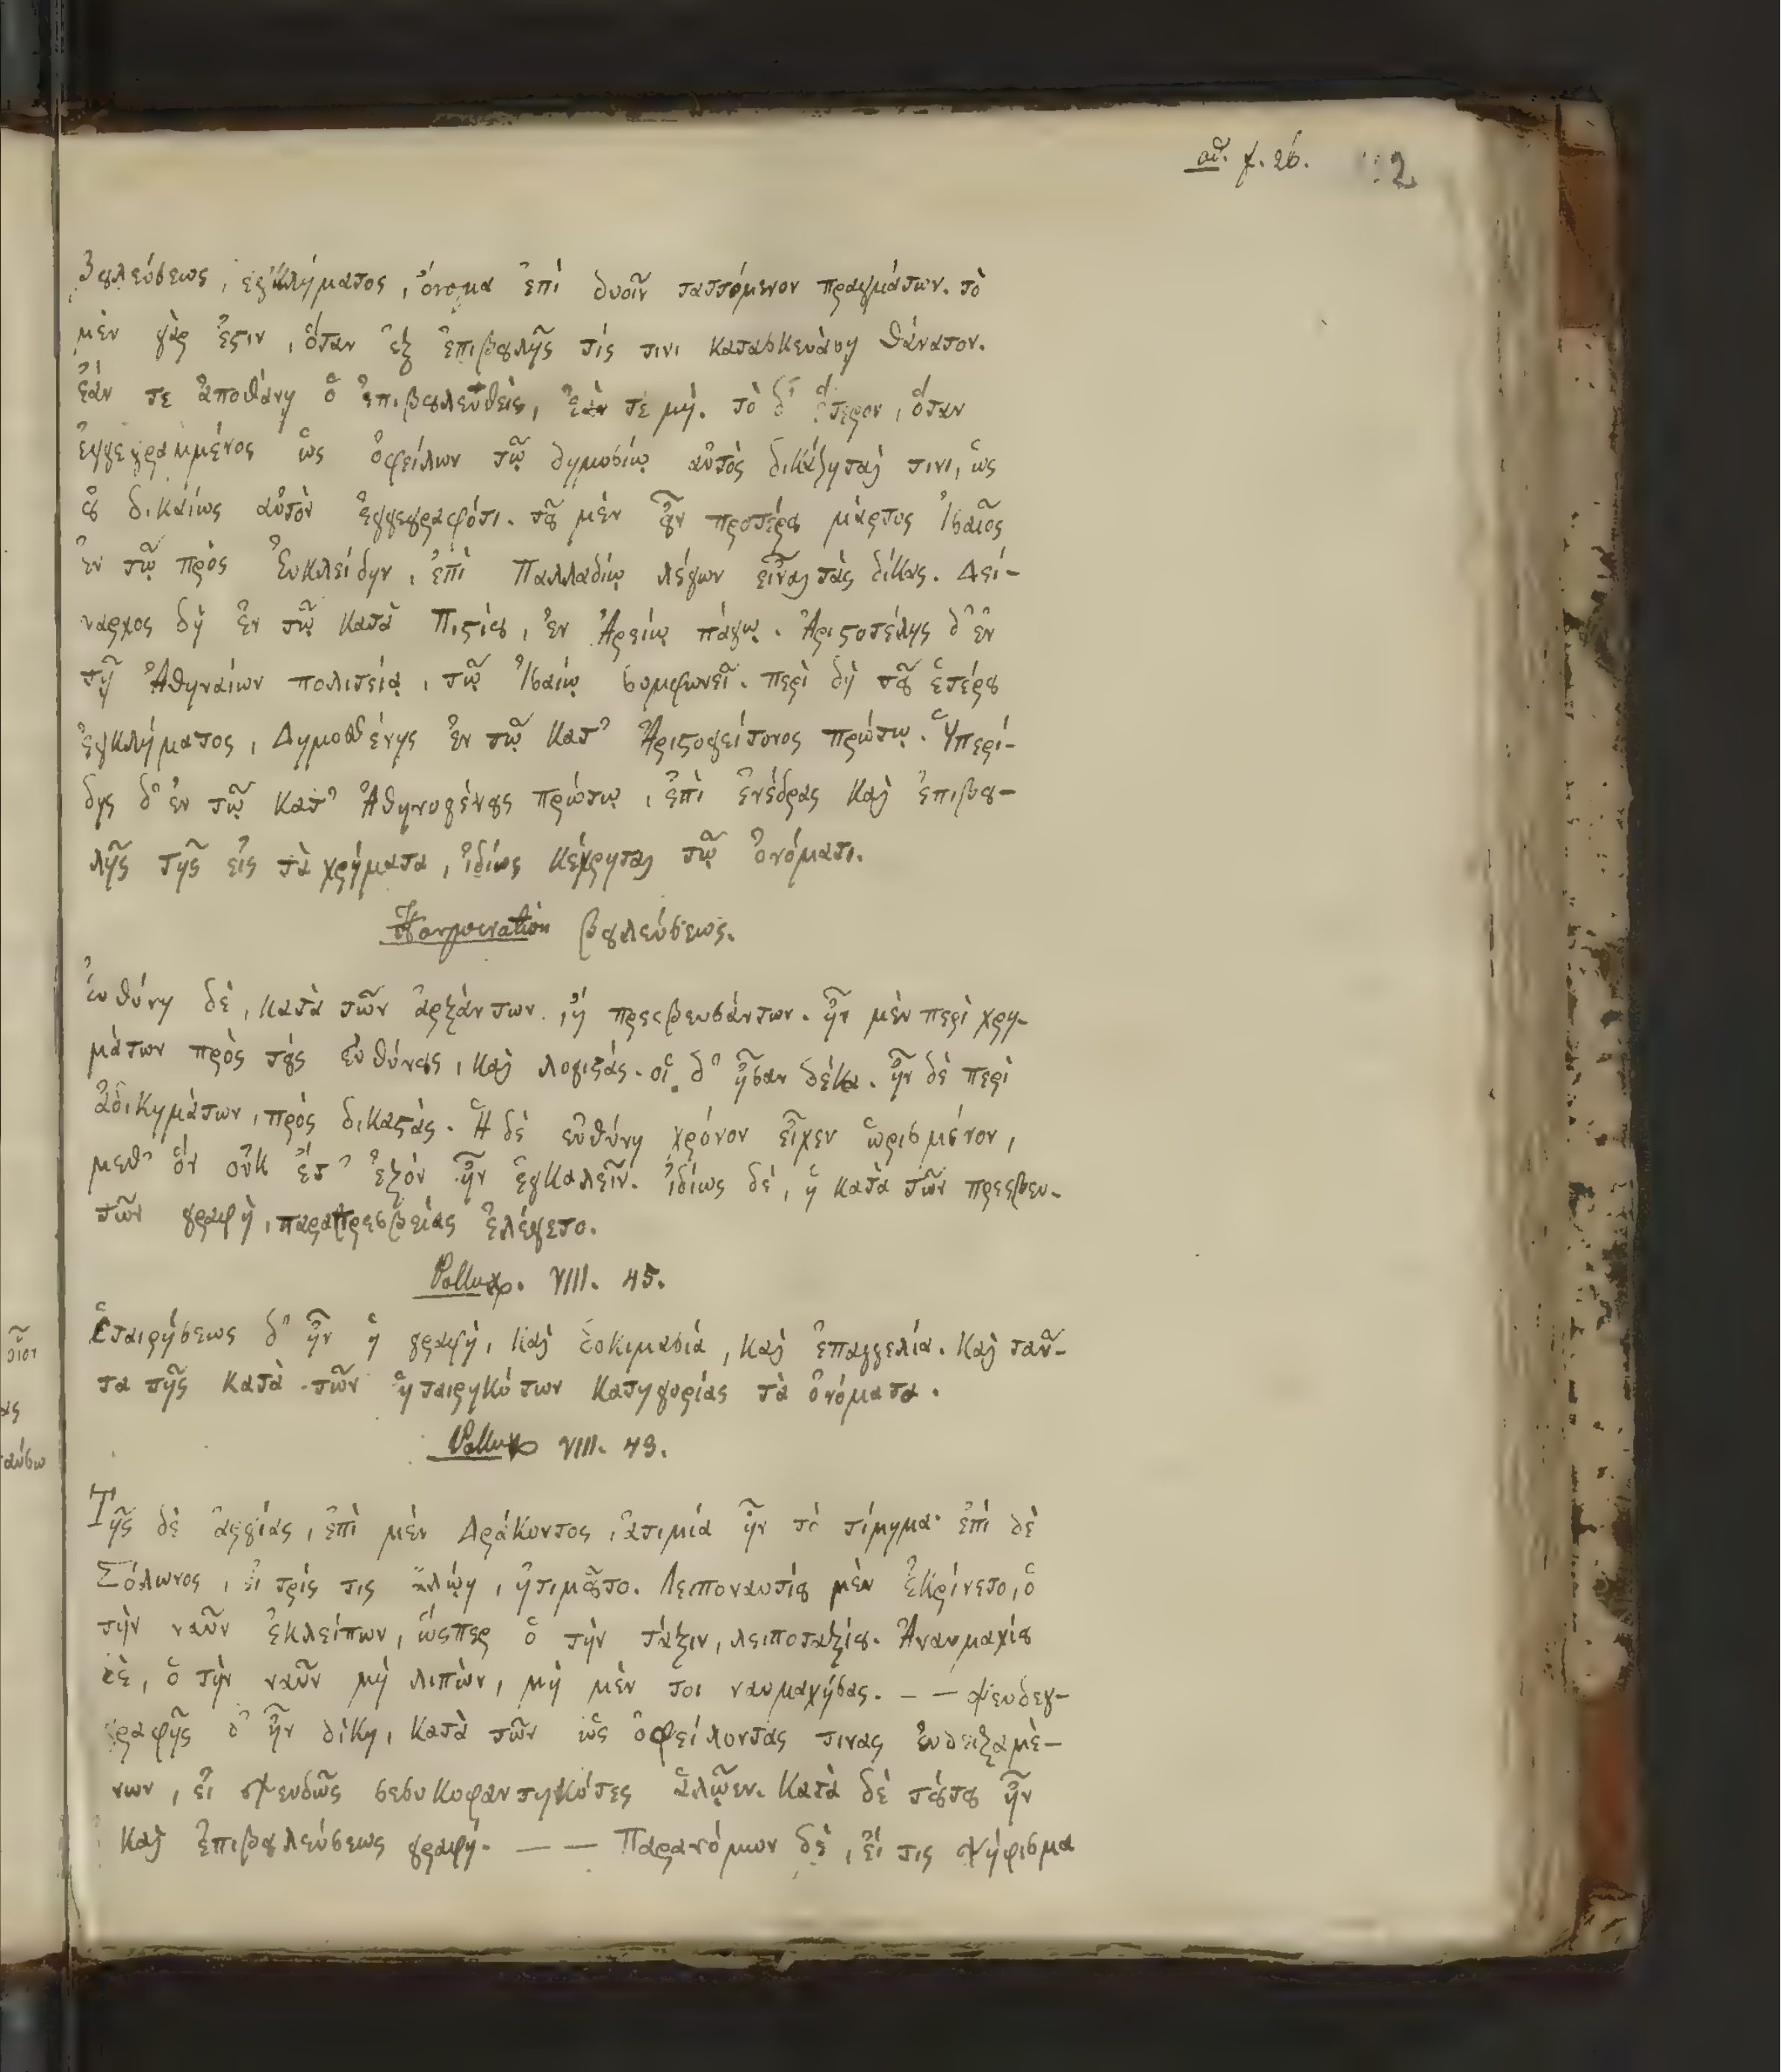 αὖ. f. 26. 2
Βȣλεύσεως, ἐγκλήματος, ὄνομα ἐπὶ δυοῖν ταττόμενον πραγμάτων. τὸ
μὲν γάρ ἐϛιν, ὅταν ἐξ ἐπιβȣλῆς τίς τινι κατασκευάσῃ θάνατον.
ἐάν τε ἀποθάνῃ ὁ ἐπιβȣλευθεὶς, ἐάν τε μή. τὸ δ' ἕτερον, ὅταν
ἐγγεγραμμένος ὡς ὀφείλων τῷ δημοσίῳ αὐτὸς δικάζηται τινι, ὡς
ȣ̓ δικαίως αὐτὸν ἐγγεγραφότι. τȣ͂ μὲν ȣ͂̓ν προτέρȣ μάρτυς Ἰσαῖος
ἐν τῷ πρὸς Ἐυκλείδην, ἐπὶ Παλλαδίῳ λέγων εἶναι τὰς δίκας. Δεί-
ναρχος δὴ ἐν τῷ κατὰ Πιϛίȣ, ἐν Ἀρείῳ πάγῳ. Ἀριϛοτέλης δ' ἐν
τῇ Ἀθηναίων πολιτείᾳ, τῷ Ἰσαίῳ συμφωνεῖ. περὶ δὴ τȣ͂ ἑτέρȣ
ἐγκλήματος, Δημοσθένης ἐν τῷ κατ' Ἀριϛογείτονος πρώτῳ. Ὑπερί-
δης δ' ἐν τῷ κατ' Ἀθηνογένȣς πρώτῳ, ἐπὶ ἐνέδρας καὶ ἐπιβȣ-
λῆς τῆς εἰς τὰ χρήματα, ἰδίως κέχρηται τῷ ὀνόματι.
Harpocration βȣλεύσεως.
Ἐυθύνη δὲ, κατὰ τῶν ἀρξάντων, ἢ πρεσβευσάντων. ἦν μὲν περὶ χρη-
μάτων πρὸς τȣ̀ς εὐθύνȣς, καὶ λογιϛάς. οἳ δ' ἦσαν δέκα. ἦν δὲ περὶ
ἀδικημάτων, πρὸς δικαϛάς. Ἡ δὲ εὐθύνη χρόνον εἶχεν ὡρισμένον,
μεθ' ὃν οὐκ ἔτ' ἐξὸν ἦν ἐγκαλεῖν. ἰδίως δὲ, ἡ κατὰ τῶν πρεσβευ-
τῶν γραφὴ, παραπρεσβείας ἐλέγετο.
Pollux. VIII. 45.
Ἑταιρήσεως δ' ἦν ἡ γραφὴ, καὶ δοκιμασία, καὶ ἐπαγγελία. καὶ ταῦ-
τα τῆς κατὰ τῶν ἡταιρηκότων κατηγορίας τὰ ὀνόματα.
Pollux VIII. 43.
Τῆς δὲ ἀργίας, ἐπὶ μὲν Δράκοντος, ἀτιμία ἦν τὸ τίμημα· ἐπὶ δὲ
Σόλωνος, εἰ τρίς τις ἁλῴη, ἠτιμȣ͂το. Λειποναυτίȣ μὲν ἐκρίνετο, ὁ
τὴν ναῦν ἐκλείπων, ὥσπερ ὁ τὴν τάξιν, λειποταξίȣ. Ἀναυμαχίȣ
δὲ, ὁ τὴν ναῦν μὴ λιπὼν, μὴ μὲν τοι ναυμαχήσας. — — ψευδεγ-
γραφῆς δ' ἦν δίκη, κατὰ τῶν ὡς ὀφείλοντας τινας ἐνδειξαμέ-
νων, εἰ ψευδῶς σεσυκοφαντηκότες ἁλῷεν. κατὰ δὲ τȣ́τȣ ἦν
καὶ ἐπιβȣλεύσεως γραφή. — — Παρανόμων δὲ, εἴ τις ψήφισμα